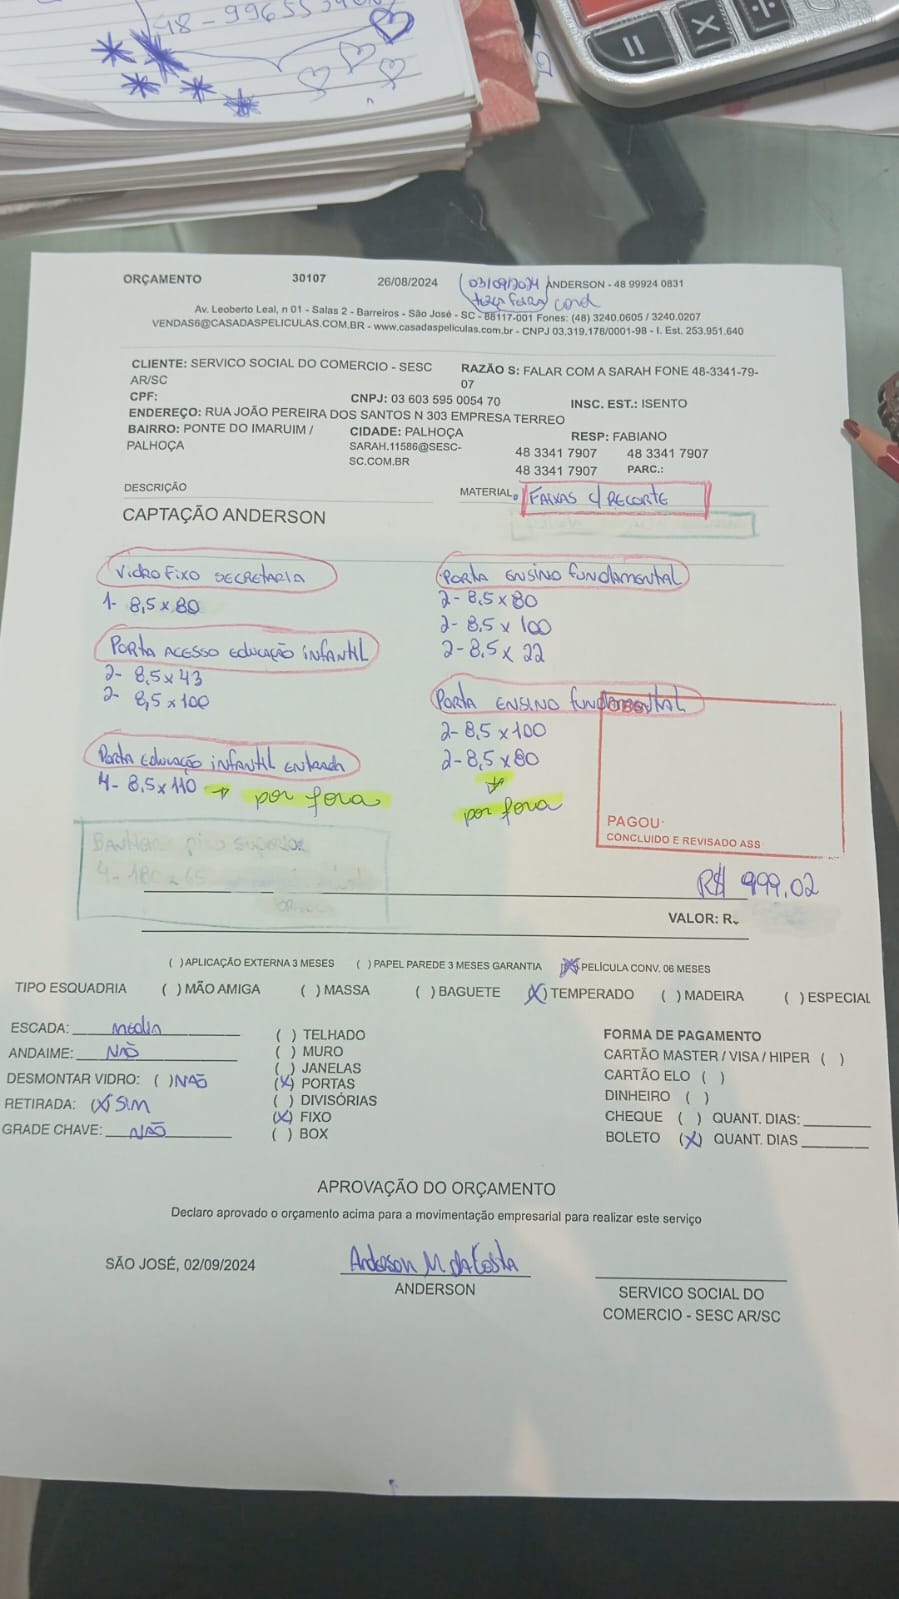 ORÇAMENTO 30107 26/08/2024 03/09/2024 ANDERSON - 48 99924 0831
Av. Leoberto Leal, n 01 - Salas 2 - Barreiros - São José - SC - 88117-001 Fones: (48) 3240.0605 / 3240.0207
VENDAS6@CASADASPELICULAS.COM.BR - www.casadaspeliculas.com.br - CNPJ 03.319.178/0001-98 - I. Est. 253.951.640
CLIENTE: SERVICO SOCIAL DO COMERCIO - SESC AR/SC
RAZÃO S: FALAR COM A SARAH FONE 48-3341-79-07
CPF: CNPJ: 03 603 595 0054 70 INSC. EST.: ISENTO
ENDEREÇO: RUA JOÃO PEREIRA DOS SANTOS N 303 EMPRESA TERREO
BAIRRO: PONTE DO IMARUIM / PALHOÇA
CIDADE: PALHOÇA RESP: FABIANO
SARAH.11586@SESC-SC.COM.BR
48 3341 7907 48 3341 7907
48 3341 7907 PARC.:
DESCRIÇÃO
MATERIAL: FAIXAS C/ RECORTE
CAPTAÇÃO ANDERSON
VIDRO FIXO SECRETARIA
1- 8,5 x 80
PORTA ACESSO EDUCAÇÃO INFANTIL
2- 8,5 x 43
2- 8,5 x 100
PORTA EDUCAÇÃO INFANTIL ENTRADA
4- 8,5 x 110 → por fora
BANHEIRO piso SUPERIOR
4- 180 x 65
PORTA ENSINO FUNDAMENTAL
2- 8,5 x 80
2- 8,5 x 100
2- 8,5 x 22
PORTA ENSINO FUNDAMENTAL
2- 8,5 x 100
2- 8,5 x 80
por fora
OBS:
PAGOU:
CONCLUIDO E REVISADO ASS
R$ 999,02
VALOR: R
( ) APLICAÇÃO EXTERNA 3 MESES ( ) PAPEL PAREDE 3 MESES GARANTIA (X) PELÍCULA CONV. 06 MESES
TIPO ESQUADRIA ( ) MÃO AMIGA ( ) MASSA ( ) BAGUETE (X) TEMPERADO ( ) MADEIRA ( ) ESPECIAL
ESCADA: Media
ANDAIME: NÃO
DESMONTAR VIDRO: ( ) NÃO
RETIRADA: (X) SIM
GRADE CHAVE: NÃO
( ) TELHADO
( ) MURO
( ) JANELAS
(X) PORTAS
( ) DIVISÓRIAS
(X) FIXO
( ) BOX
FORMA DE PAGAMENTO
CARTÃO MASTER / VISA / HIPER ( )
CARTÃO ELO ( )
DINHEIRO ( )
CHEQUE ( ) QUANT. DIAS:
BOLETO (X) QUANT. DIAS
APROVAÇÃO DO ORÇAMENTO
Declaro aprovado o orçamento acima para a movimentação empresarial para realizar este serviço
SÃO JOSÉ, 02/09/2024
Anderson M. da Costa
ANDERSON
SERVICO SOCIAL DO
COMERCIO - SESC AR/SC